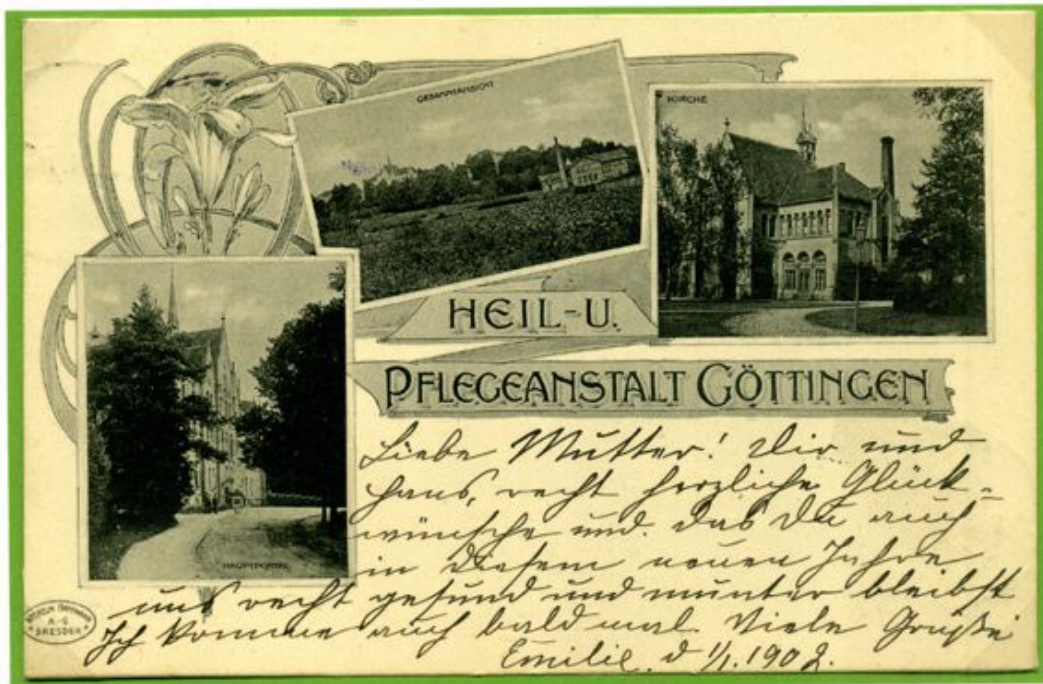 GESAMMTANSICHT
KIRCHE
HEIL-U.
PFLEGEANSTALT GÖTTINGEN
HAUPTPORTAL
Liebe Mutter! Dir und
Hans, recht herzliche Glück-
wünsche und das Du auch
in diesem neuen Jahre
uns recht gesund und munter bleibst
Ich komme auch bald mal. Viele Grüße
Emilie. d 1/1. 1902.
A.-G
DRESDEN